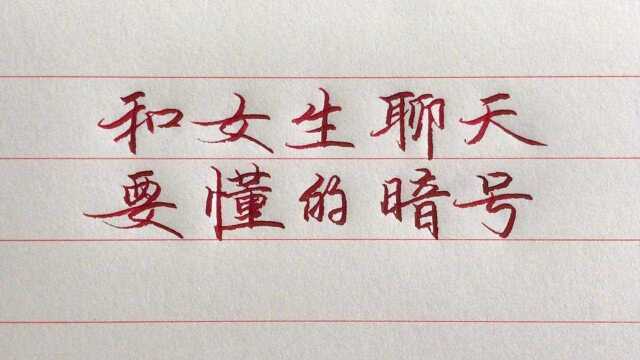 和女生聊天
要懂的暗号